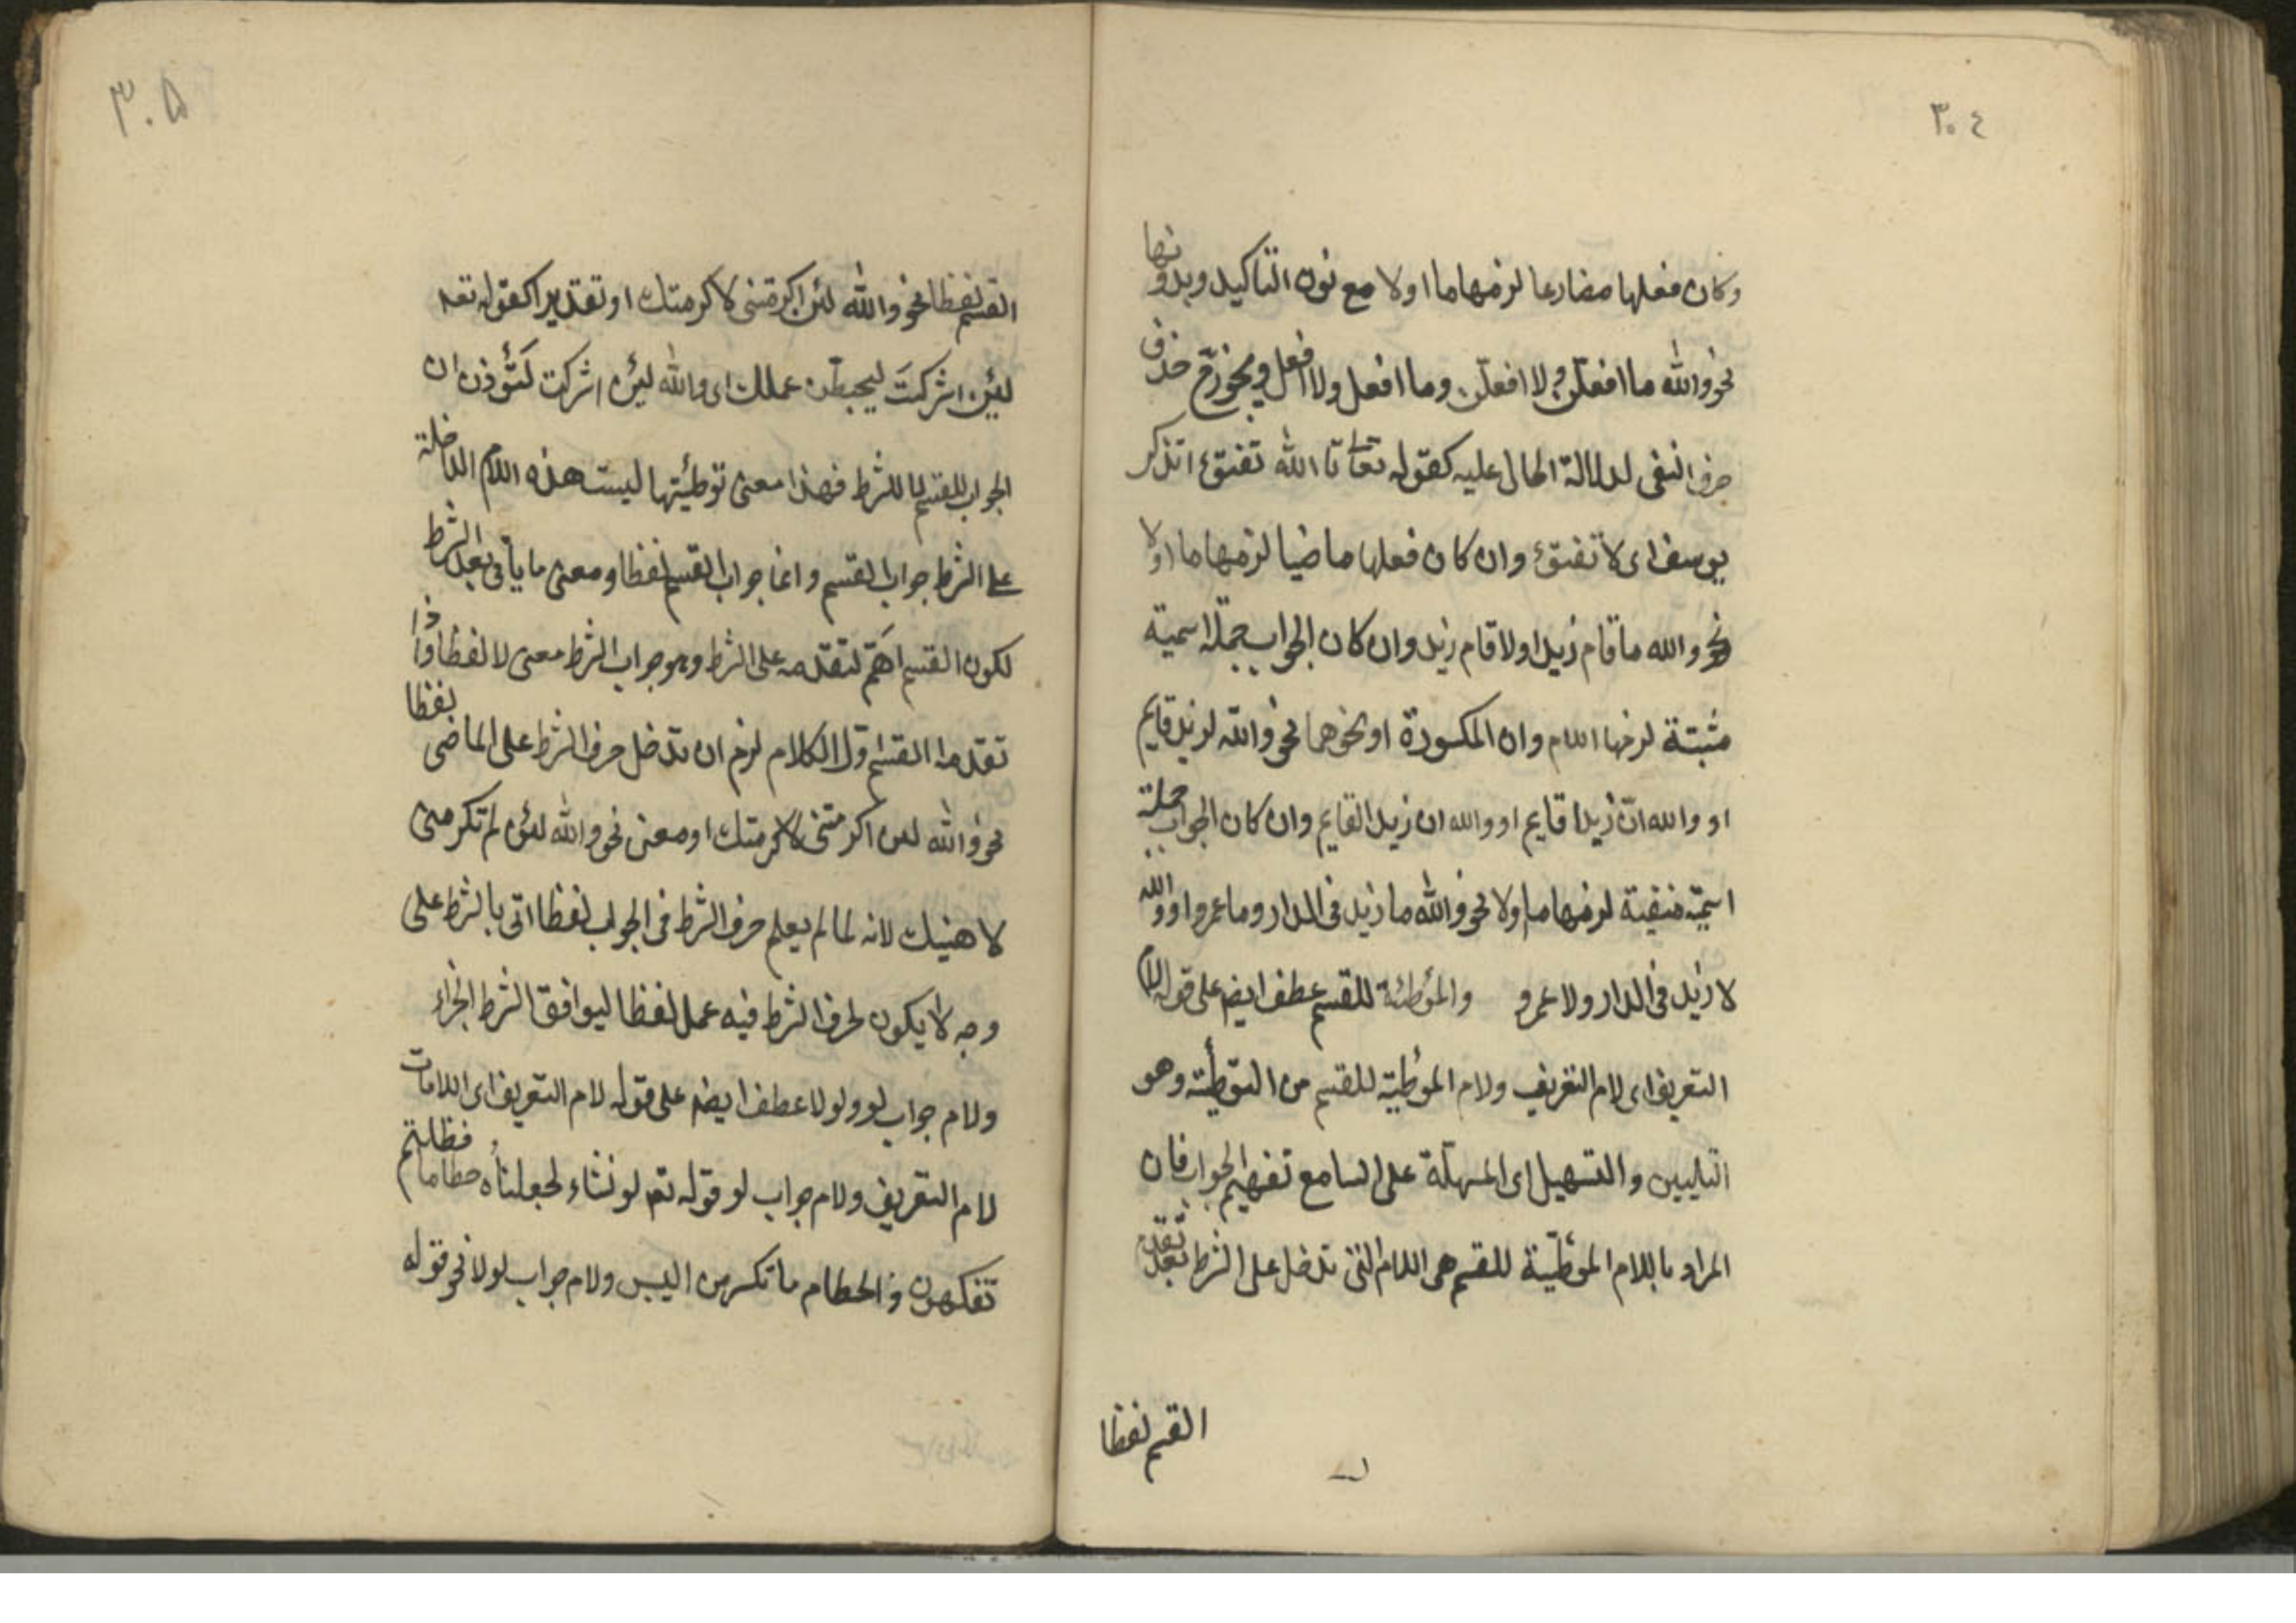 ٣٠٤
وكان فعلها مضارعا لزمها ما اولا مع نون التاكيد وبدونها
نحو والله ما افعلن ولا افعلن وما افعل ولا افعل ويجوز ح حذف
حرف النفى لدلالة الحال عليه كقوله تعالى تا الله تفتؤ اتذكر
يوسف اى لا تفتؤ وان كان فعلها ماضيا لزمها ما اولا
نحو والله ما قام زيد اولا قام زيد وان كان الجواب جملة اسمية
مثبتة لزمها اللام وان المكسورة او نحوهما نحو والله لزيد قايم
او والله انّ زيدا قايم او والله ان زيدا لقايم وان كان الجواب جملة
اسميّة منفية لزمها ما ولا نحو والله ما زيد فى الدار وما عمرو او والله
لا زيد فى الدار ولا عمرو والموُطئة للقسم عطف ايضم على قوله لام
التعريف اى لام التعريف ولام الموُطية للقسم من التوطئة وهو
التليين والتسهيل اى المسهلة على السامع تفهيم الجواب فان
المراد باللام الموُطيّة للقسم هى اللام التى تدخل على الشرط بعد تقدم
القسم لفظا
٣٠۵
القسم لفظا نحو والله لئن اكرمتنى لاكرمتك او تقديرا كقوله تعه
لئن اشركتَ ليحبطنّ عملك اى والله لئن اشركت لتؤذن ان
الجواب للقسم لا للشرط فهذا معنى توطئيتها ليست هذه اللام الداخلة
على الشرط جواب القسم وانما جواب القسم لفظا ومعنى ما ياتى بعد الشرط
لكون القسم اهَمّ لتقدمه على الشرط وهو جواب الشرط معنى لا لفظا واذا
تقدم القسم اوّل الكلام لزم ان تدخل حرف الشرط على الماضى لفظا
نحو والله لئن اكرمتنى لاكرمتك او معنى نحو والله لئن لم تكرمنى
لاهنيك لانه لما لم يعلم حرف الشرط فى الجواب لفظا اتى بالشرط على
وجه لا يكون لحرف الشرط فيه عمل لفظا ليوافق الشرط الجزاء
ولام جواب لو ولولا عطف ايضم على قوله لام التعريف اى اللامات
لام التعريف ولام جواب لو قوله تعه لو نشاء لجعلناه حطاما فظلتم
تفكهون والحطام ما تكسر من اليبس ولام جواب لولا نحو قوله